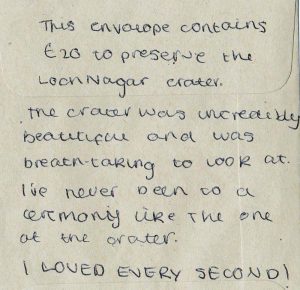 This envolope contains
£20 to preserve the
LochNagar crater.
The crater was uncredibly
beautiful and was
breath-taking to look at.
I've never been to a
ceremony like the one
at the crater.
I LOVED EVERY SECOND!